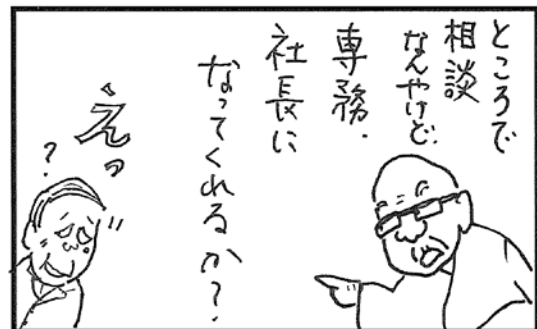 ところで
相談
なんやけど、
専務、
社長に
なってくれるか？
えっ
？